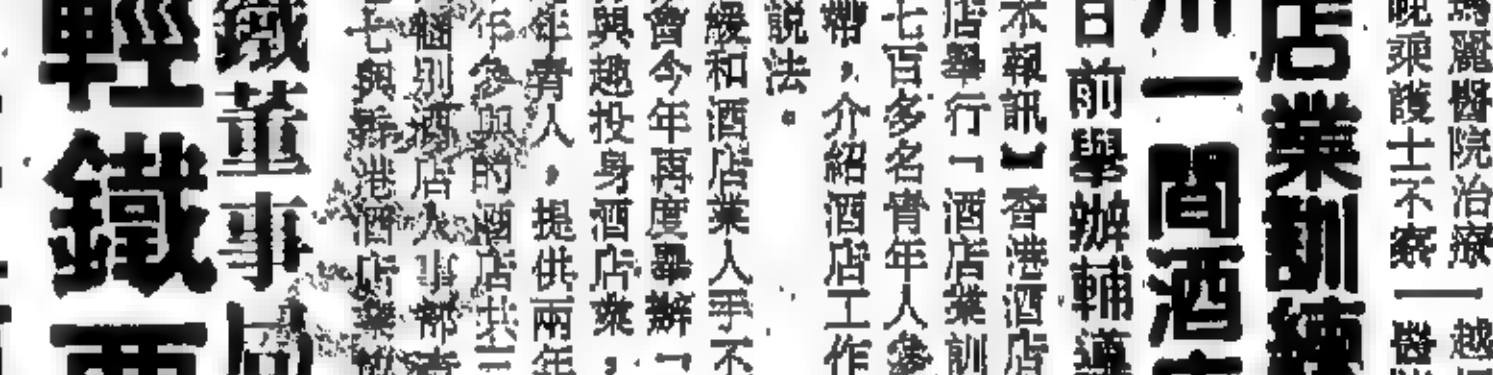 瑪麗醫院治療，越
晚乘護士不察——醫
店業訓練
川一間酒店
日前舉辦輔導
本報訊】香港酒店
店舉行「酒店業訓
七百多名青年人參
，介紹酒店工作
説法。
緩和酒店業人手不
會今年再度舉辦「
與趣投身酒店業，
年青人，提供兩年
年參與的酒店共三
個別酒店人事部
七與香港酒店業
鐵董事局
輕鐵西